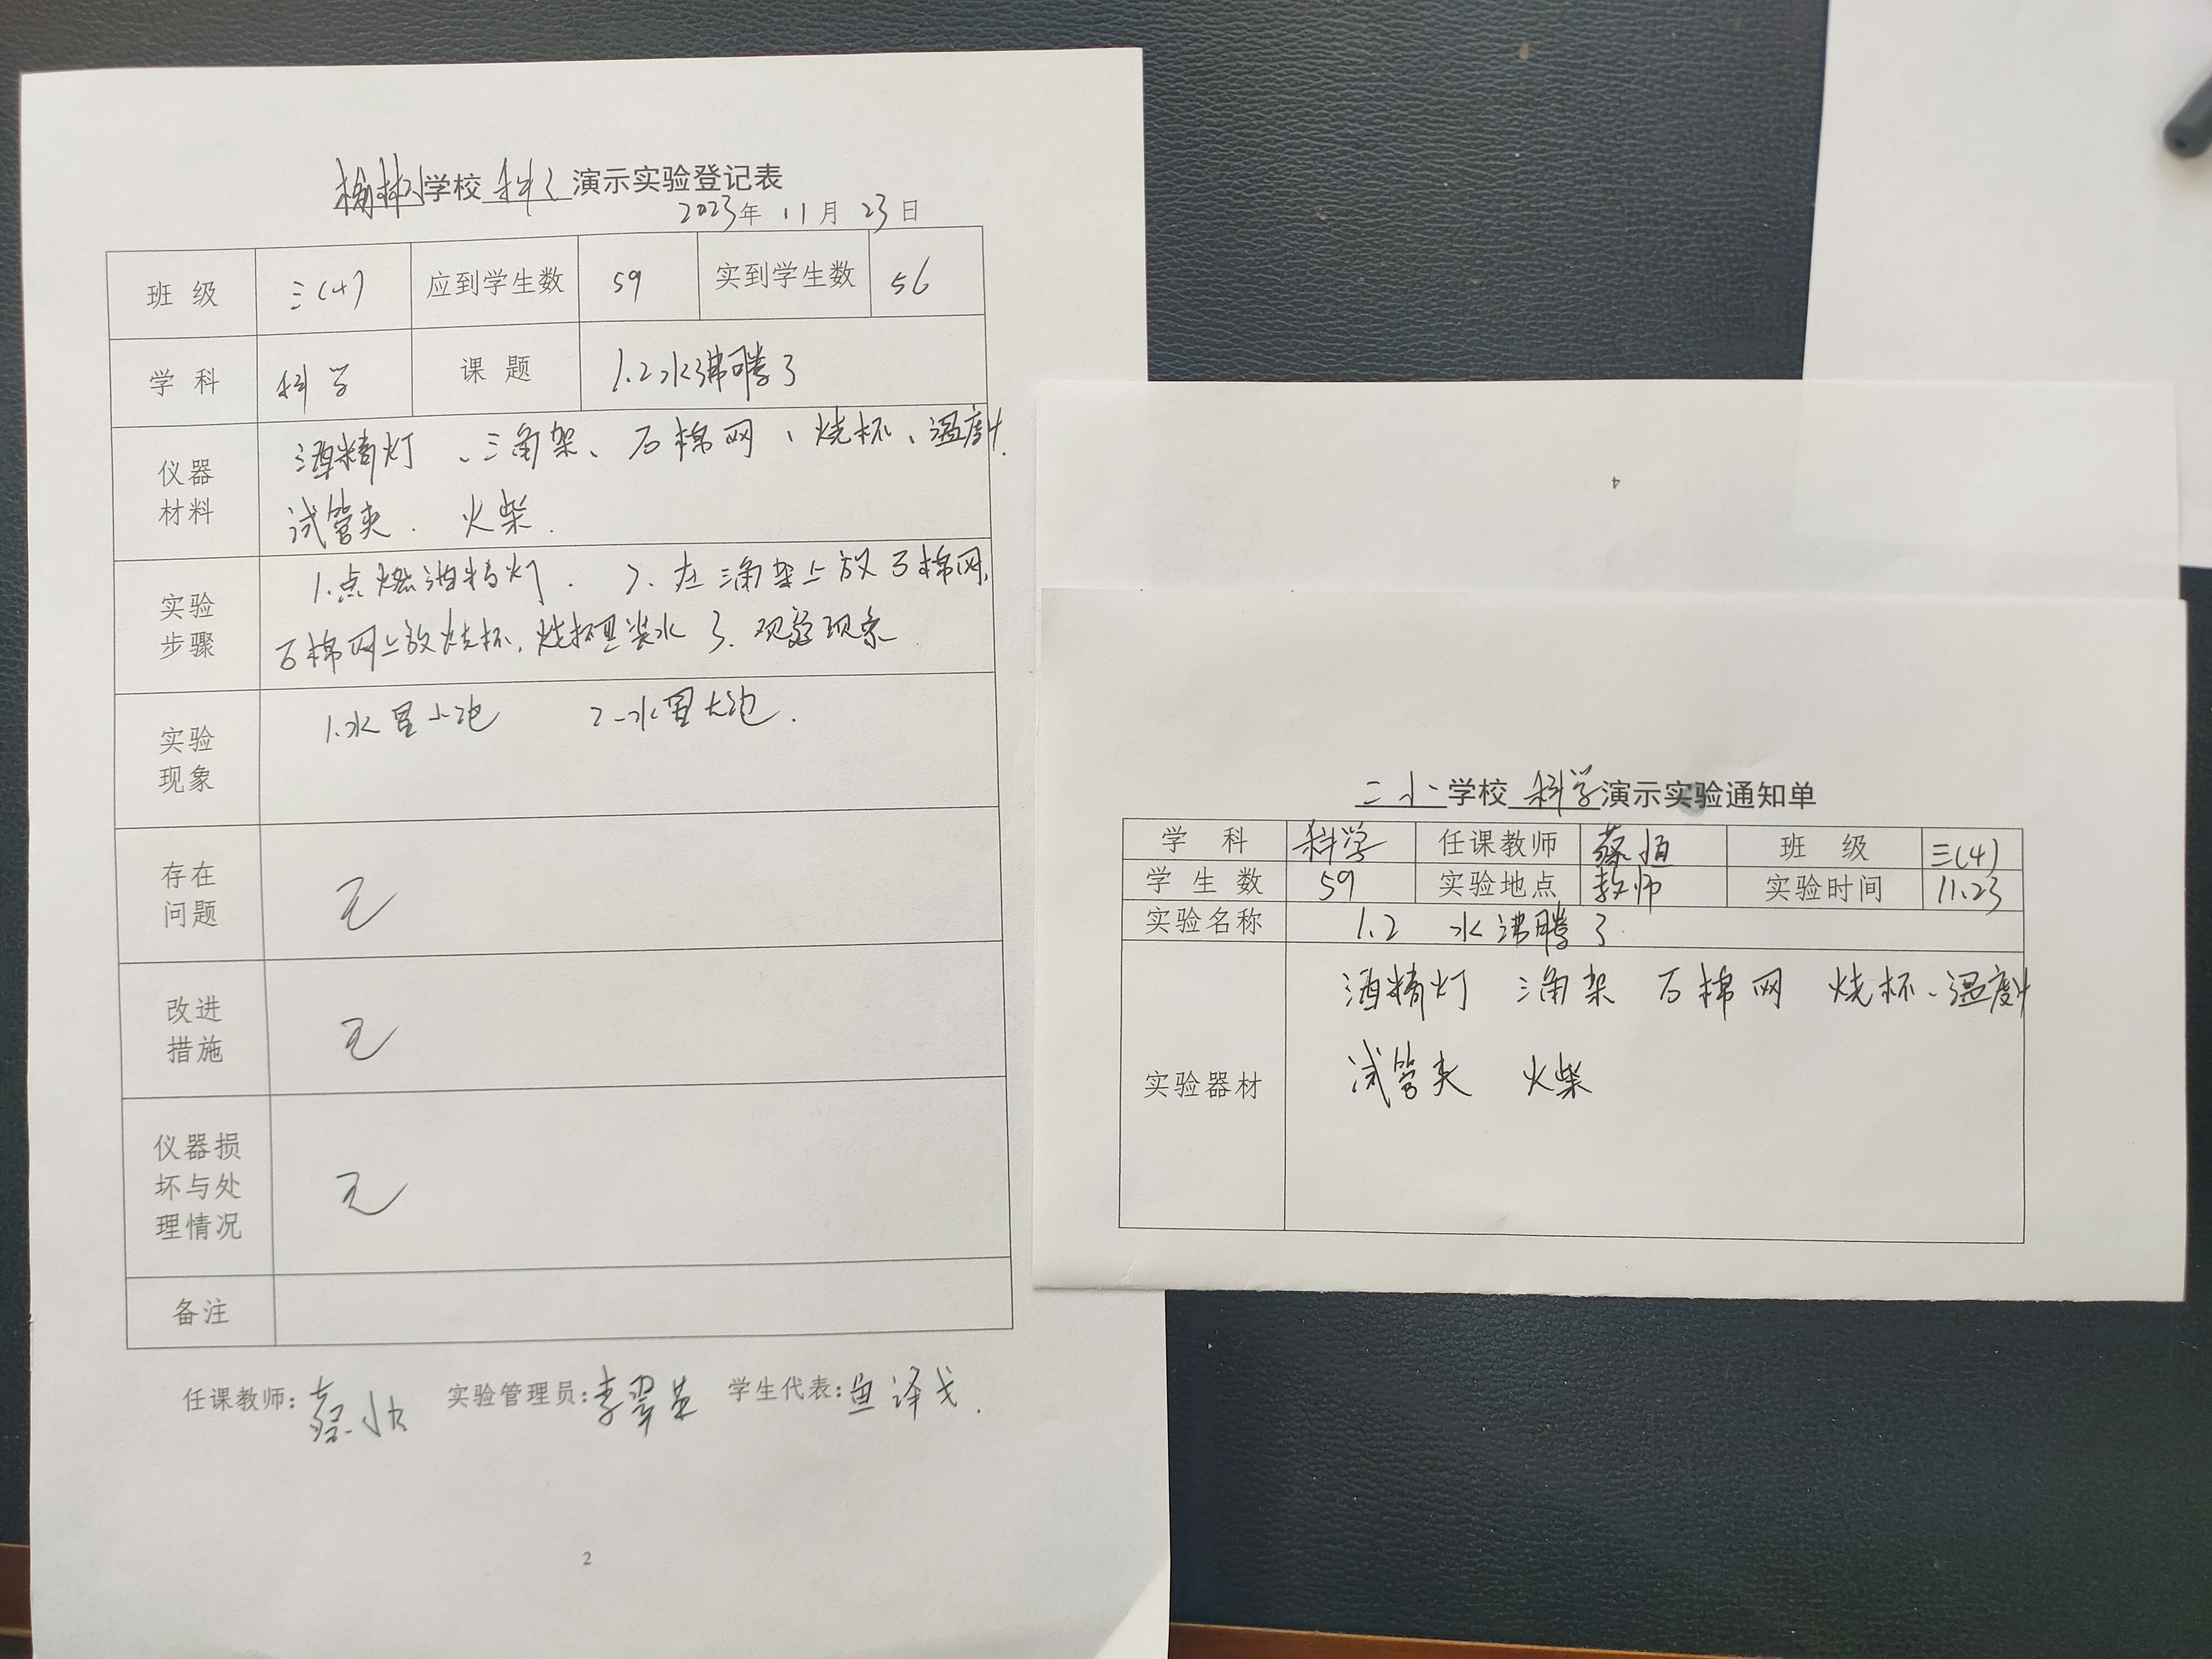 学校 科 演示实验登记表
2023年 11月 23日
班 级 三(4) 应到学生数 59 实到学生数 56
学 科 科学 课 题 1.2水沸腾了
仪器材料 酒精灯、三角架、石棉网、烧杯、温度计.
试管夹. 火柴.
实验步骤 1.点燃酒精灯. 2.在三角架上放石棉网,
石棉网上放烧杯,烧杯里装水 3.观察现象
实验现象 1.水冒小泡 2.水冒大泡.
存在问题 无
改进措施 无
仪器损坏与处理情况 无
备注
任课教师: 蔡 实验管理员:李翠英 学生代表:鱼译戈.
2
4
二小学校 科学演示实验通知单
学 科 科学 任课教师 蔡恒 班 级 三(4)
学 生 数 59 实验地点 教师 实验时间 11.23
实验名称 1.2 水沸腾了
实验器材 酒精灯 三角架 石棉网 烧杯、温度计
试管夹 火柴